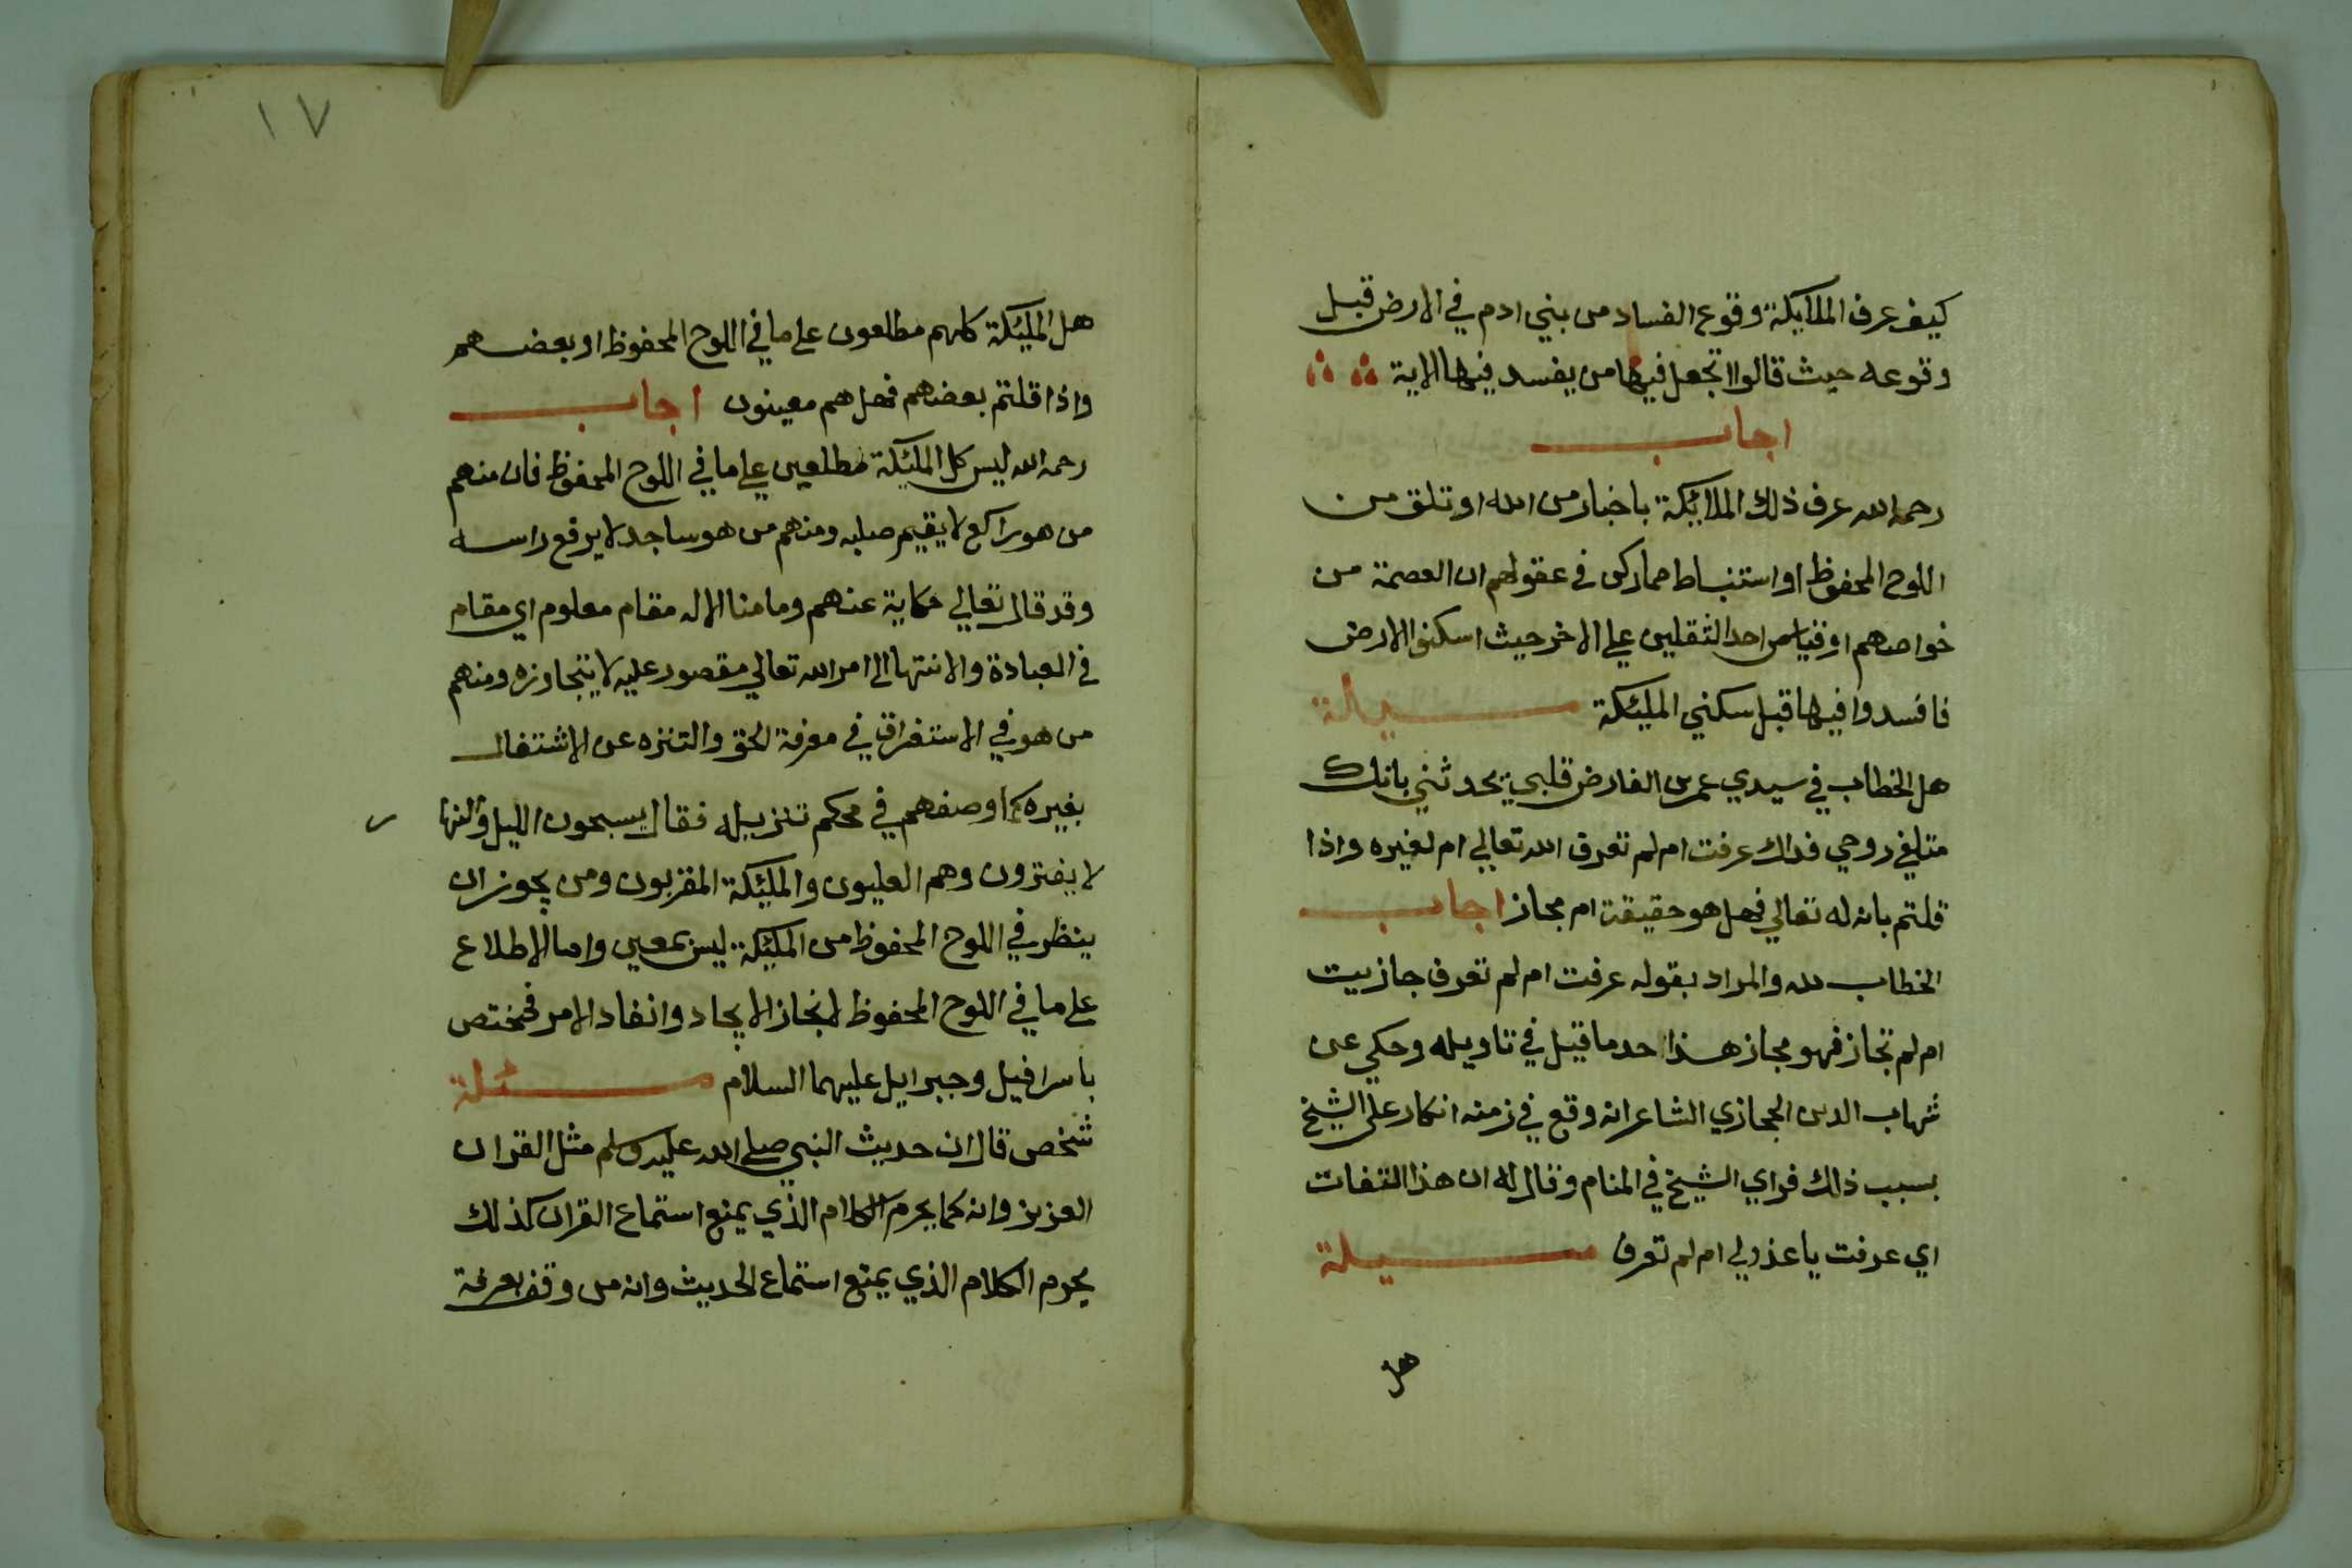 كيف عرف الملايكة وقوع الفساد من بني ادم في الارض قبل
وقوعه حيث قالوا اتجعل فيها من يفسد فيها الاية
اجاب
رحمه الله عرف ذلك الملائكة باخبار من الله او تلق من
اللوح المحفوظ او استنباط مما ركن في عقولهم ان العصمة من
خواصهم او قياس احد الثقلين علي الاخر حيث اسكنوا الارض
فافسدوا فيها قبل سكني المليكة مسيلة
هل الخطاب في سيدي عمر بن الفارض قلبي يحدثني بانك
متلفي روحي فداك عرفت ام لم تعرف الله تعالي ام لغيره واذا
قلتم بانه له تعالي فهل هو حقيقة ام مجاز اجاب
الخطاب لله والمراد بقوله عرفت ام لم تعرف جازيت
ام لم تجاز فهو مجاز هذا احد ما قيل في تاويله وحكي عن
شهاب الدين الحجازي الشاعر انه وقع في زمنه انكار على الشيخ
بسبب ذلك فراي الشيخ في المنام وقال له ان هذا التفات
اي عرفت يا عذولي ام لم تعرف مسيلة
هل
١٧
هل المليكة كلهم مطلعون علي ما في اللوح المحفوظ او بعضهم
واذا قلتم بعضهم فهل هم معينون اجاب
رحمه الله ليس كل المليكة مطلعين علي ما في اللوح المحفوظ فان منهم
من هو راكع لا يقيم صلبه ومنهم من هو ساجد لا يرفع راسه
وقد قال تعالي حكاية عنهم وما منا الا له مقام معلوم اي مقام
في العبادة والانتها الي امر الله تعالي مقصور عليه لا يتجاوزه ومنهم
من هو في الاستغراق في معرفة الحق والتنزه عن الاشتغال
بغيره كما وصفهم في محكم تنزيله فقال يسبحون الليل والنها ر
لا يفترون وهم العليون والمليكة المقربون ومن يجوز ان
ينظر في اللوح المحفوظ من المليكة ليس بمعين واما الاطلاع
علي ما في اللوح المحفوظ لانجاز الايجاد وانفاد الامر فمختص
باسرافيل وجبرايل عليهما السلام مسئلة
شخص قال ان حديث النبي صلي الله عليه وسلم مثل القران
العزيز وانه كما يحرم الكلام الذي يمنع استماع القران كذلك
يحرم الكلام الذي يمنع استماع الحديث وانه من وقف بعرفة